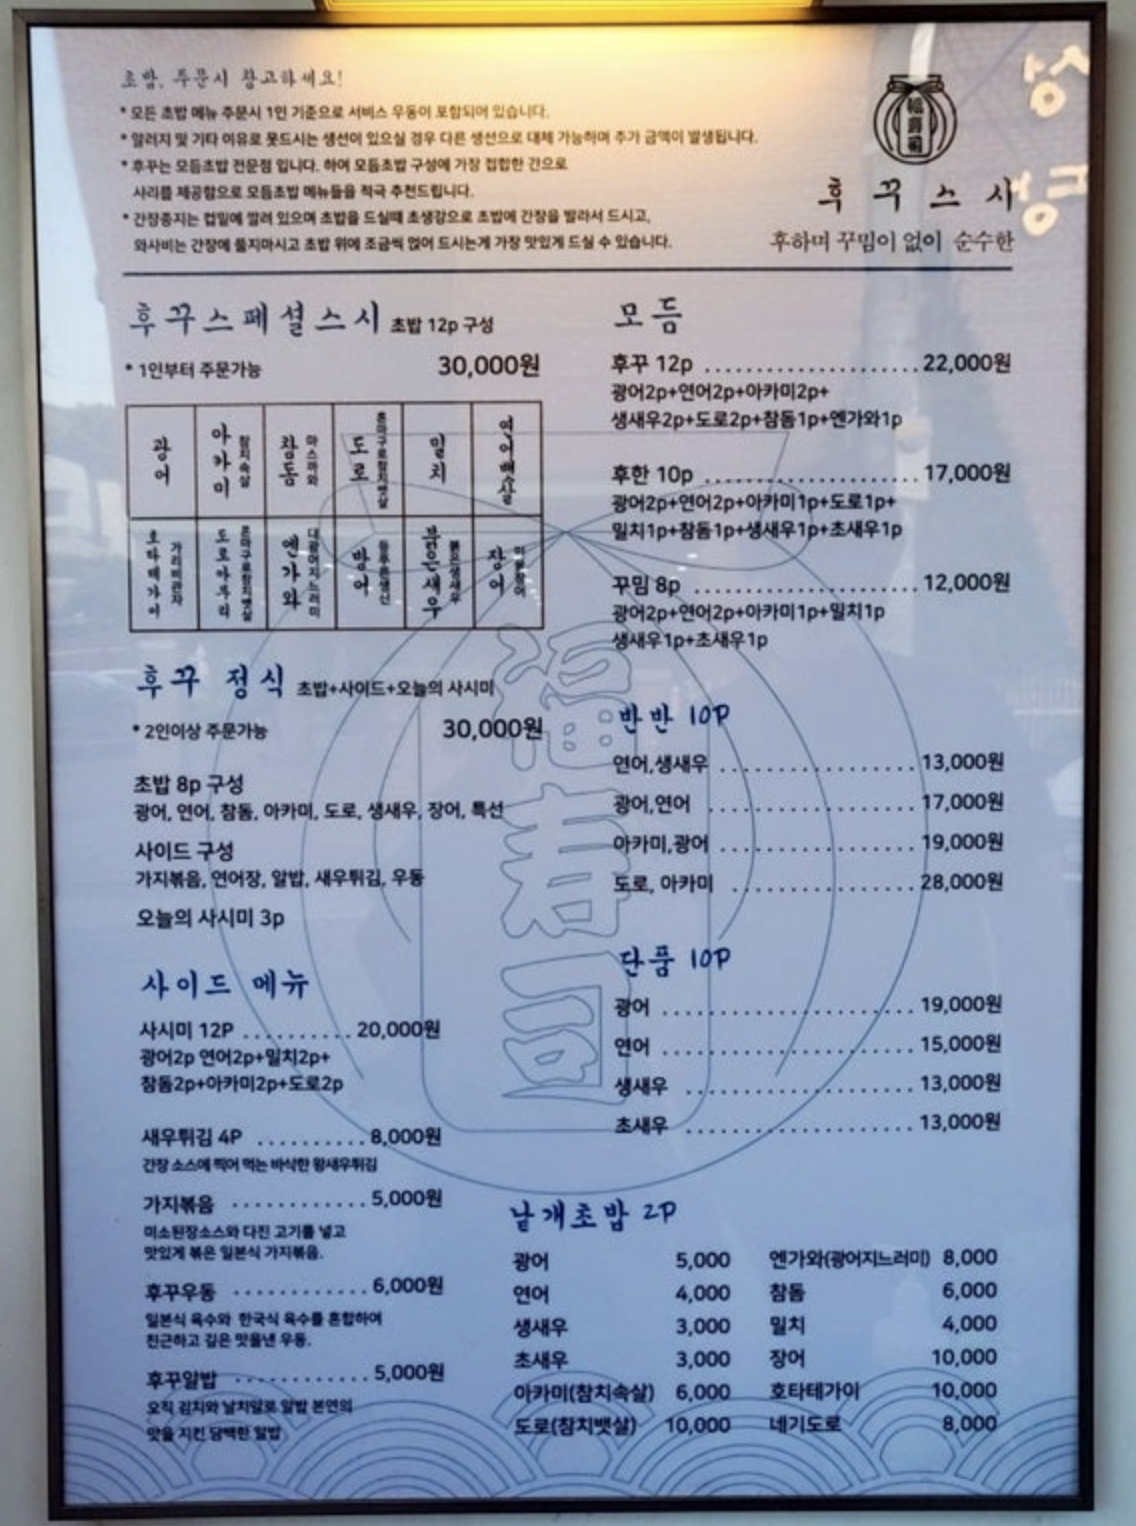 초밥, 주문시 참고하세요!
* 모든 초밥 메뉴 주문시 1인 기준으로 서비스 우동이 포함되어 있습니다.
* 알러지 및 기타 이유로 못드시는 생선이 있으실 경우 다른 생선으로 대체 가능하며 추가 금액이 발생됩니다.
* 후꾸는 모듬초밥 전문점 입니다. 하여 모듬초밥 구성에 가장 접합한 간으로
샤리를 제공함으로 모듬초밥 메뉴들을 적극 추천드립니다.
* 간장종지는 컵밑에 깔려 있으며 초밥을 드실때 초생강으로 초밥에 간장을 발라서 드시고,
와사비는 간장에 풀지마시고 초밥 위에 조금씩 얹어 드시는게 가장 맛있게 드실 수 있습니다.
福寿司
후꾸스시
후하며 꾸밈이 없이 순수한
후꾸스페셜스시 초밥 12p 구성
* 1인부터 주문가능 30,000원
광어
아카미 참치속살
참돔 마스까와
도로 혼마구로참치뱃살
밀치
연어뱃살
호타테가이 가리비관자
도로아부리 혼마구로참치뱃살
엔가와 대광어지느러미
방어 등푸른생선
붉은새우 붉은생새우
장어
후꾸 정식 초밥+사이드+오늘의 사시미
* 2인이상 주문가능 30,000원
초밥 8p 구성
광어, 연어, 참돔, 아카미, 도로, 생새우, 장어, 특선
사이드 구성
가지볶음, 연어장, 알밥, 새우튀김, 우동
오늘의 사시미 3p
사이드 메뉴
사시미 12P .......... 20,000원
광어2p 연어2p+밀치2p+
참돔2p+아카미2p+도로2p
새우튀김 4P .......... 8,000원
간장 소스에 찍어 먹는 바삭한 왕새우튀김
가지볶음 ............ 5,000원
미소된장소스와 다진 고기를 넣고
맛있게 볶은 일본식 가지볶음.
후꾸우동 ............ 6,000원
일본식 육수와 한국식 육수를 혼합하여
친근하고 깊은 맛을낸 우동.
후꾸알밥 ............ 5,000원
오직 김치와 날치알로 알밥 본연의
맛을 지킨 담백한 알밥
모듬
후꾸 12p .................... 22,000원
광어2p+연어2p+아카미2p+
생새우2p+도로2p+참돔1p+엔가와1p
후한 10p .................... 17,000원
광어2p+연어2p+아카미1p+도로1p+
밀치1p+참돔1p+생새우1p+초새우1p
꾸밈 8p ..................... 12,000원
광어2p+연어2p+아카미1p+밀치1p
생새우1p+초새우1p
반반 10P
연어,생새우 .................. 13,000원
광어,연어 ................... 17,000원
아카미,광어 .................. 19,000원
도로, 아카미 ................. 28,000원
단품 10P
광어 ....................... 19,000원
연어 ....................... 15,000원
생새우 ..................... 13,000원
초새우 ..................... 13,000원
낱개초밥 2P
광어 5,000 엔가와(광어지느러미) 8,000
연어 4,000 참돔 6,000
생새우 3,000 밀치 4,000
초새우 3,000 장어 10,000
아카미(참치속살) 6,000 호타테가이 10,000
도로(참치뱃살) 10,000 네기도로 8,000
福寿司